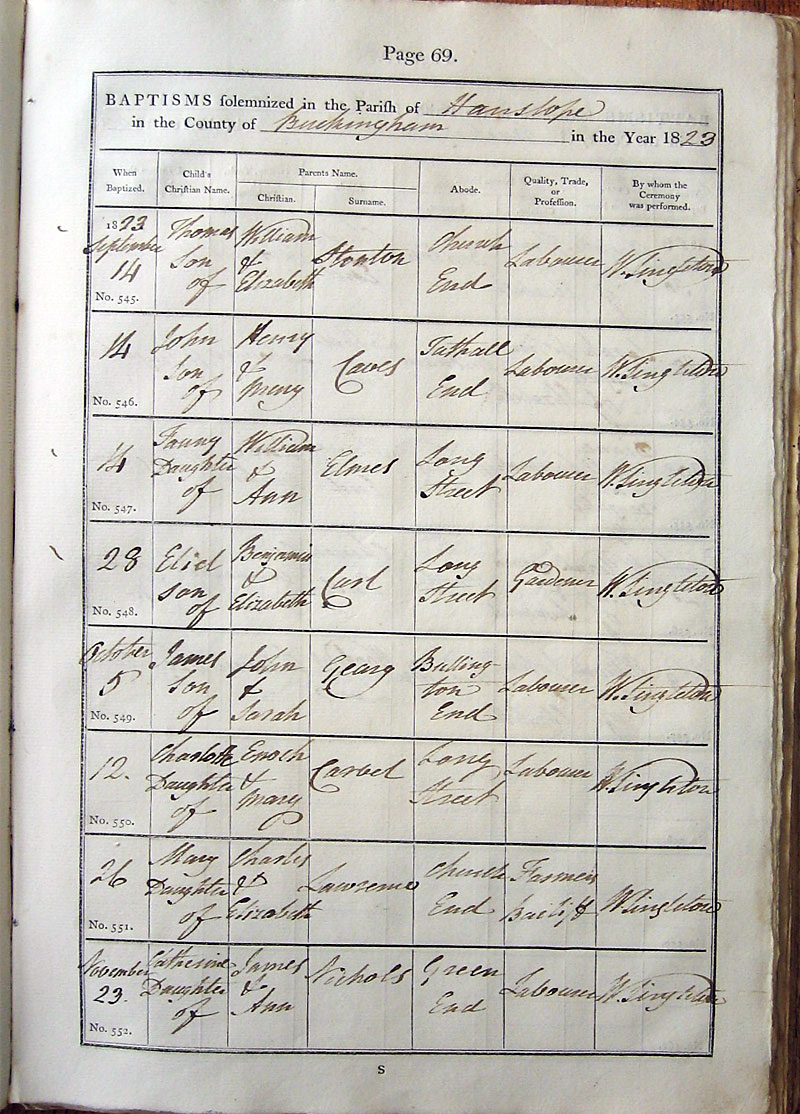 Page 69.
BAPTISMS solemnized in the Parish of Hanslope
in the County of Buckingham in the Year 1823
When Baptized.
Child's Christian Name.
Parents Name.
Christian.
Surname.
Abode.
Quality, Trade, or Profession.
By whom the Ceremony was performed.
1823
September
14
No. 545.
Thomas
Son
of
William
&
Elizabeth
Stonton
Church
End
Labourer
W. Singleton
14
No. 546.
John
Son
of
Henry
&
Caves
Tathall
End
Labourer
W. Singleton
14
No. 547.
Fanny
Daughter
of
William
&
Ann
Elmes
Long
Street
Labourer
W. Singleton
28
No. 548.
Son
of
Benjamin
&
Elizabeth
Long
Street
Gardener
W. Singleton
October
5
No. 549.
James
Son
of
John
&
Sarah
Geary
Bulling-
ton
End
Labourer
W. Singleton
12.
No. 550.
Charlotte
Daughter
of
Enoch
&
Mary
Long
Street
Labourer
W. Singleton
26
No. 551.
Mary
Daughter
of
Charles
&
Elizabeth
Lawrence
Church
End
Farmers
Bailiff
W. Singleton
November
23.
No. 552.
Catherine
Daughter
of
James
&
Ann
Nichols
Green
End
Labourer
W. Singleton
S